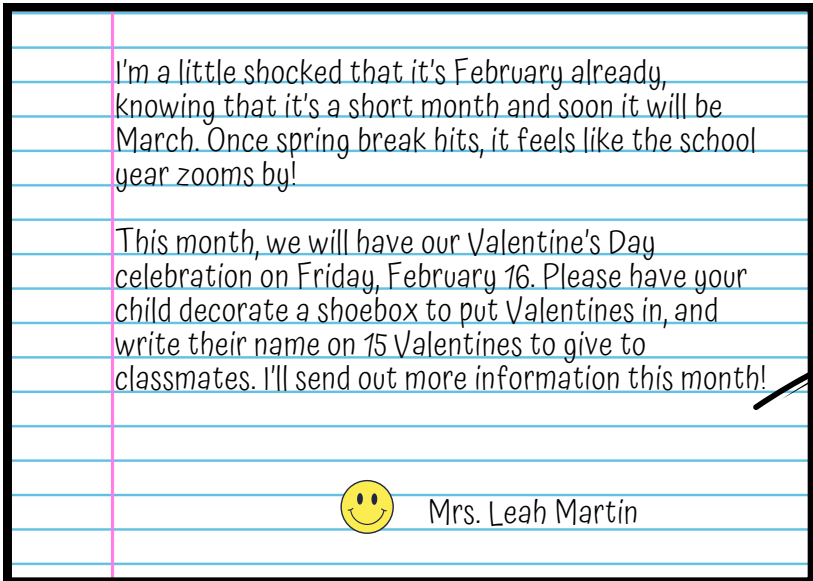 I'm a little shocked that it's February already,
knowing that it's a short month and soon it will be
March. Once spring break hits, it feels like the school
year zooms by!
This month, we will have our Valentine's Day
celebration on Friday, February 16. Please have your
child decorate a shoebox to put Valentines in, and
write their name on 15 Valentines to give to
classmates. I'll send out more information this month!
Mrs. Leah Martin